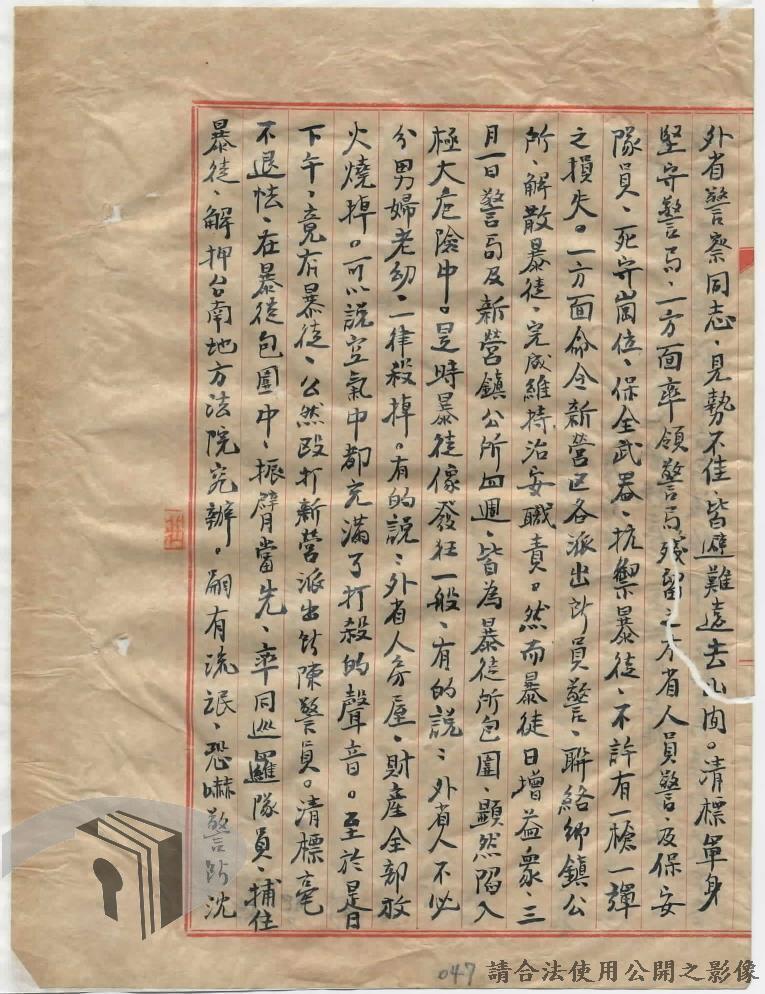 外省警察同志、見勢不佳、皆避難遠去山间。清標單身
堅守警局、一方面率領警局殘留之方省人員警、及保安
隊員、死守崗位、保全武器、抗禦暴徒、不許有一槍一彈
之損失。一方面命令新營区各派出所員警、聯絡鄉鎮公
所、解散暴徒、完成維持治安職責。然而暴徒日增益衆、三
月一日警局及新營鎮公所四週、皆為暴徒所包圍、顯然陷入
極大危險中。是時暴徒像發狂一般、有的說：外省人不必
分男婦老幼、一律殺掉。有的說：外省人房屋、財產全部放
火燒掉。可以說空氣中都充滿了打殺的聲音。至於是日
下午、竟有暴徒、公然毆打新營派出所陳警員。清標毫
不退怯、在暴徒包圍中、振臂當先、率同巡邏隊員、捕住
暴徒、解押台南地方法院究辦。嗣有流氓、恐嚇警所沈
047
請合法使用公開之影像